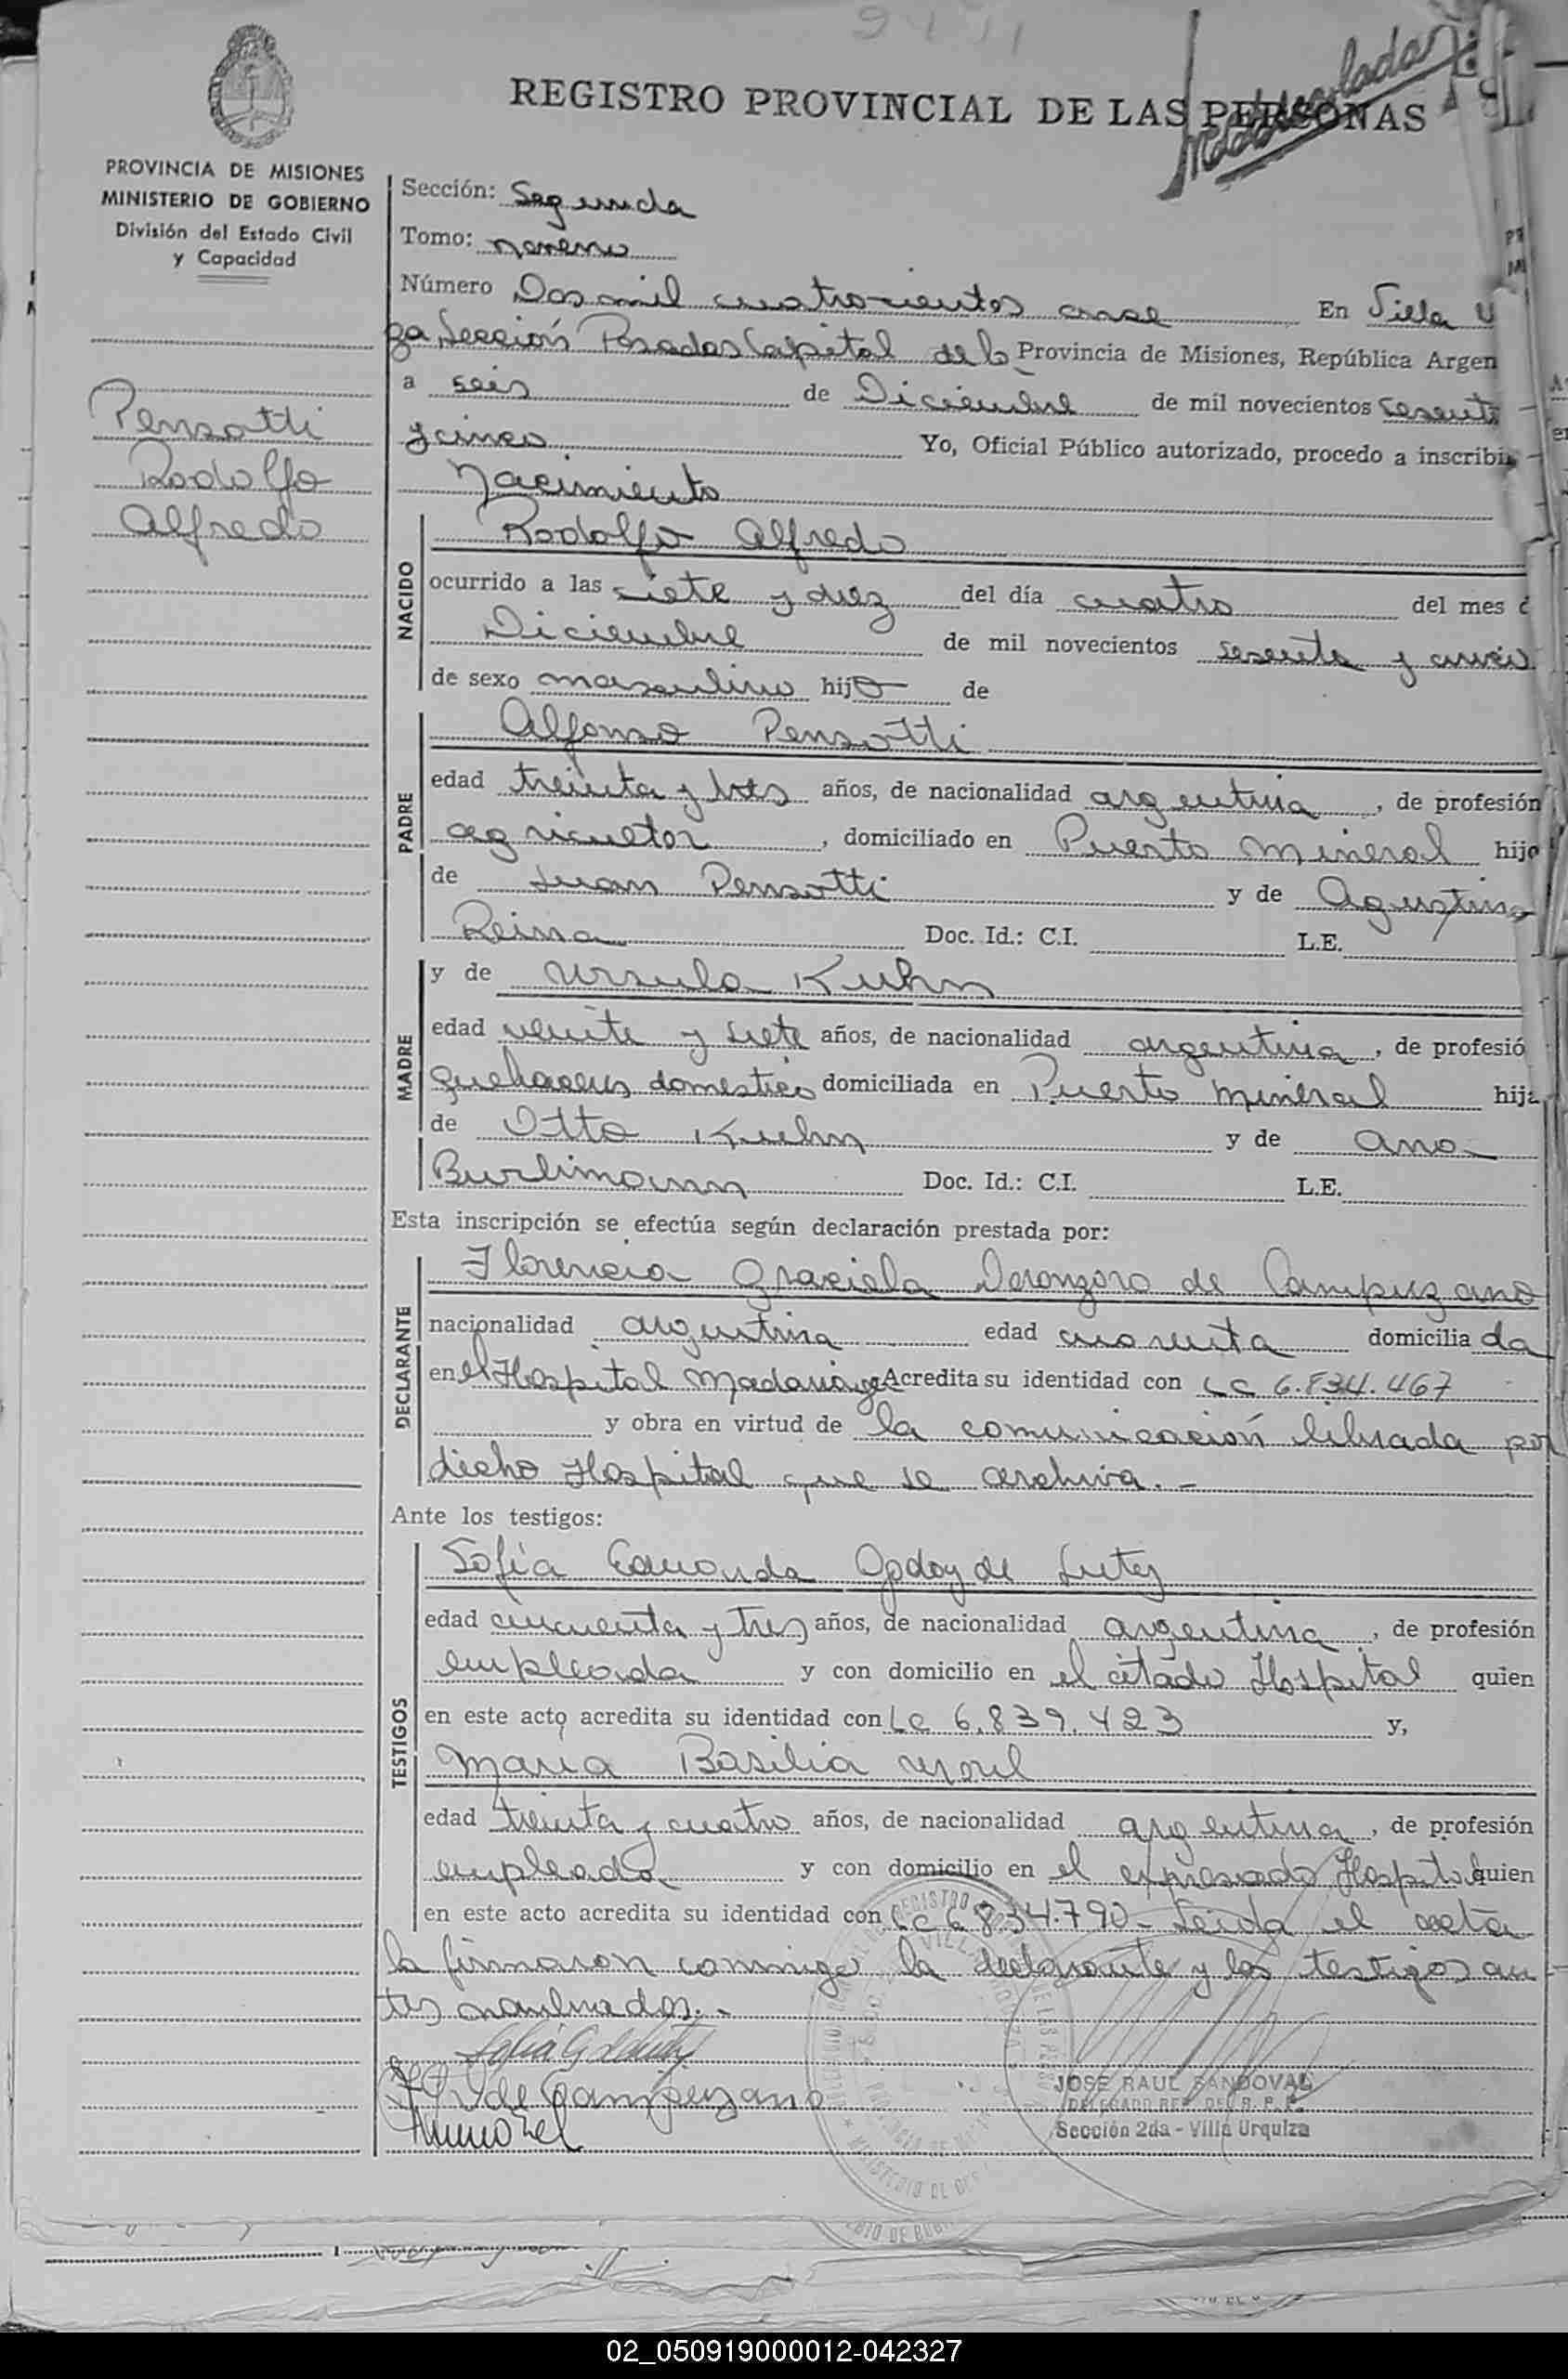 9411
REGISTRO PROVINCIAL DE LAS PERSONAS
PROVINCIA DE MISIONES
MINISTERIO DE GOBIERNO
División del Estado Civil
y Capacidad
Pensotti
Rodolfo
Alfredo
Sección: Segunda
Tomo: noveno
Número Dos mil cuatrocientos once En Villa U
ga Sección Posadas Capital de la Provincia de Misiones, República Argen
a seis de Diciembre de mil novecientos sesenta
y cinco Yo, Oficial Público autorizado, procedo a inscribir
Nacimiento
NACIDO
Rodolfo Alfredo
ocurrido a las siete y diez del día cuatro del mes d
Diciembre de mil novecientos sesenta y cinco
de sexo masculino hijo de
PADRE
Alfonso Pensotti
edad treinta y tres años, de nacionalidad argentina, de profesión
agricultor, domiciliado en Puerto Mineral hijo
de Juan Pensotti y de Agustina
Reina Doc. Id.: C.I. L.E.
MADRE
y de Ursula Kuhn
edad veinte y siete años, de nacionalidad argentina, de profesió
quehaceres domestico domiciliada en Puerto Mineral hija
de Otto Kuhn y de Ana
Burlimann Doc. Id.: C.I. L.E.
Esta inscripción se efectúa según declaración prestada por:
DECLARANTE
Florencia Graciela de Campuzano
nacionalidad argentina edad cuarenta domiciliada
en el Hospital Madariaga Acredita su identidad con LC 6.834.467
y obra en virtud de la comunicación librada por
dicho Hospital que se archiva.-
Ante los testigos:
TESTIGOS
Sofía Godoy de
edad cincuenta y tres años, de nacionalidad argentina, de profesión
empleada y con domicilio en el citado Hospital quien
en este acto acredita su identidad con LC 6.839.423 y,
María Basilia
edad treinta y cuatro años, de nacionalidad argentina, de profesión
empleada y con domicilio en el expresado Hospital quien
en este acto acredita su identidad con LC 6.834.790- Leida el acta
la firmaron conmigo la declarante y los testigos an
tes nombrados.-
de Campuzano
JOSE RAUL SANDOVAL
DELEGADO REG. DEL R. P. P.
Sección 2da - Villa Urquiza
02_050919000012-042327